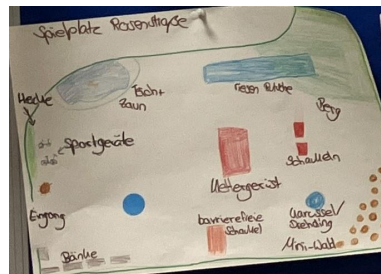 Spielplatz Rosenstraße
Hecke
Zaun
riesen Rutsche
Berg
Sportgeräte
Schaukeln
Klettergerüst
Eingang
barrierefreie
Schaukel
Karussel/
Mini-Wald
Bänke